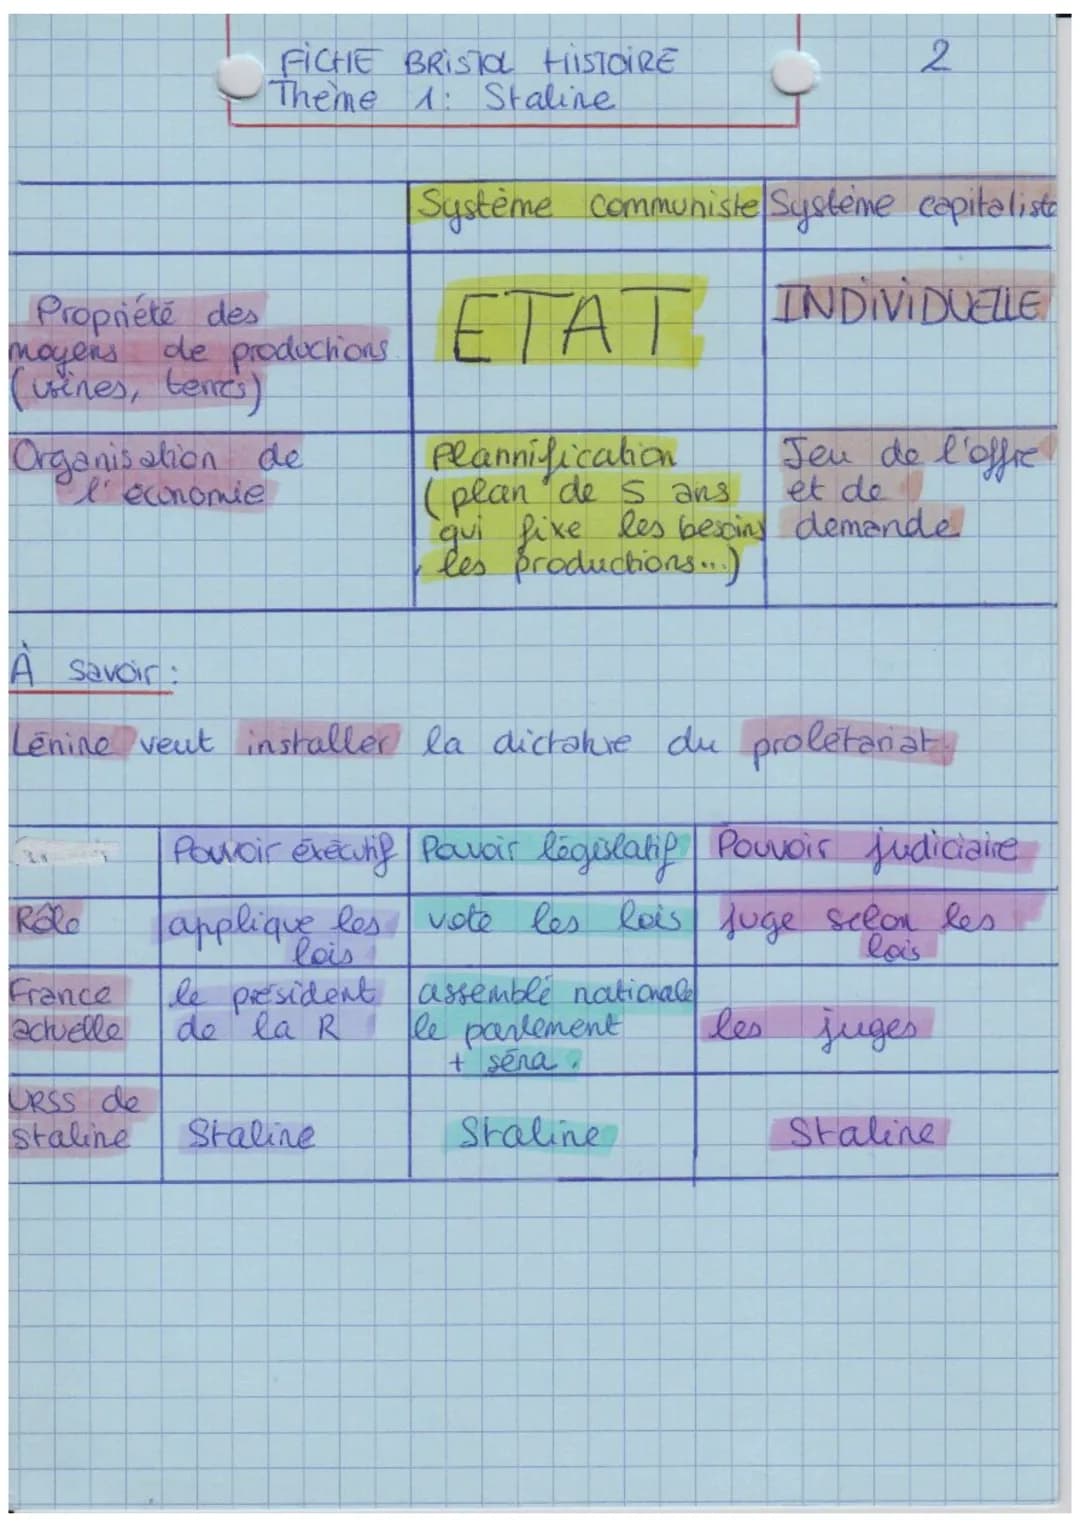 FICHE BRISTOL HISTOIRE
2
Thème 1: Staline
Système communiste
Système capitaliste
Propriété des
moyens de productions
(usines, terres)
ETAT
INDIVIDUELLE
Organisation de
l'économie
plannification
(plan de 5 ans
qui fixe les besoins
les productions...)
Jeu de l'offre
et de
demande
À savoir :
Lénine veut installer la dictature du prolétariat.
Pouvoir éxécutif
Pouvoir législatif
Pouvoir judiciaire
Rôle
applique les
lois
vote les lois
juge selon les
lois
France
actuelle
le président
de la R
assemblé nationale
le parlement
+ séna.
les juges
URSS de
staline
Staline
Staline
Staline